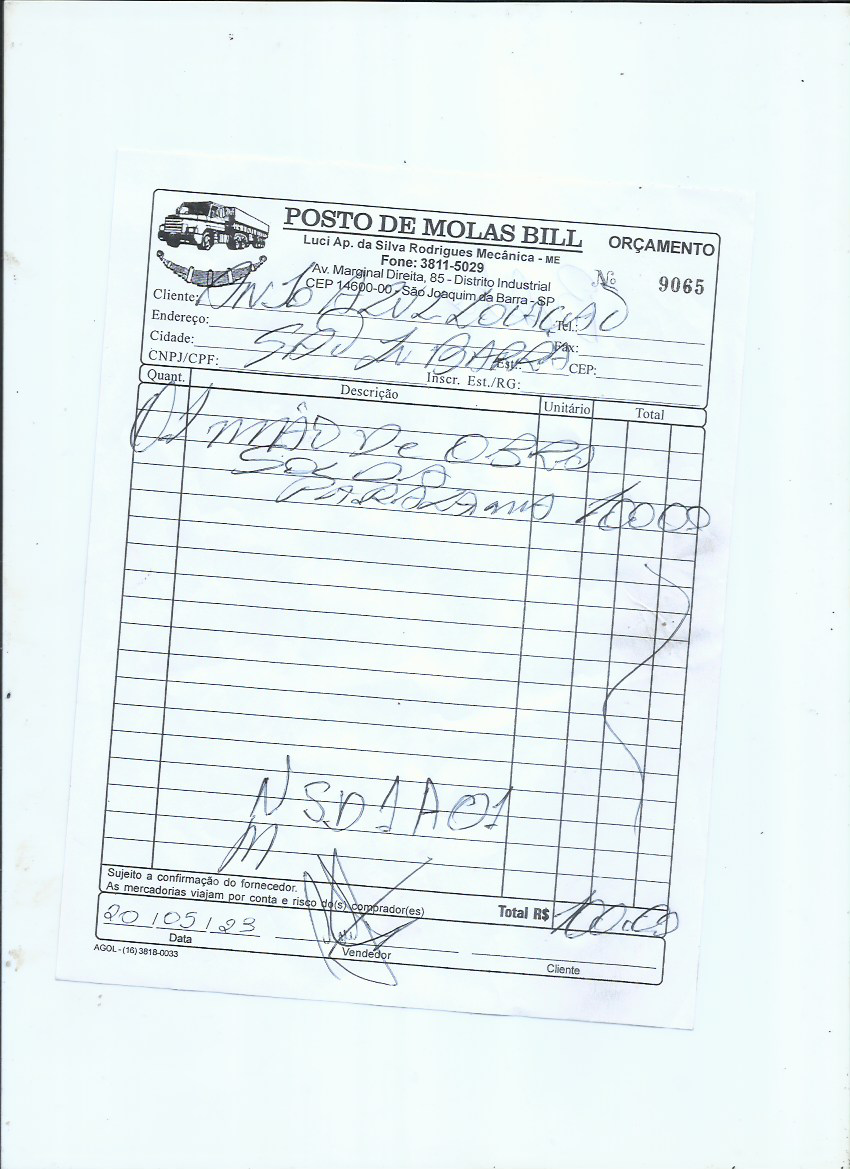 POSTO DE MOLAS BILL
ORÇAMENTO
Luci Ap. da Silva Rodrigues Mecânica - ME
Fone: 3811-5029
Av. Marginal Direita, 85 - Distrito Industrial
CEP 14600-00 - São Joaquim da Barra - SP
Nº 9065
Cliente: AZUL LOCAÇÃO Tel.:
Endereço: Fax:
Cidade: BARRA Est.: CEP:
CNPJ/CPF: Inscr. Est./RG:
Quant. Descrição Unitário Total
01 MÃO De OBRA
SOLDA
100 00
NSD1A01
M
Sujeito a confirmação do fornecedor.
As mercadorias viajam por conta e risco do(s) comprador(es)
Total R$ 100.00
20/05/23
Data Vendedor Cliente
AGOL - (16) 3818-0033